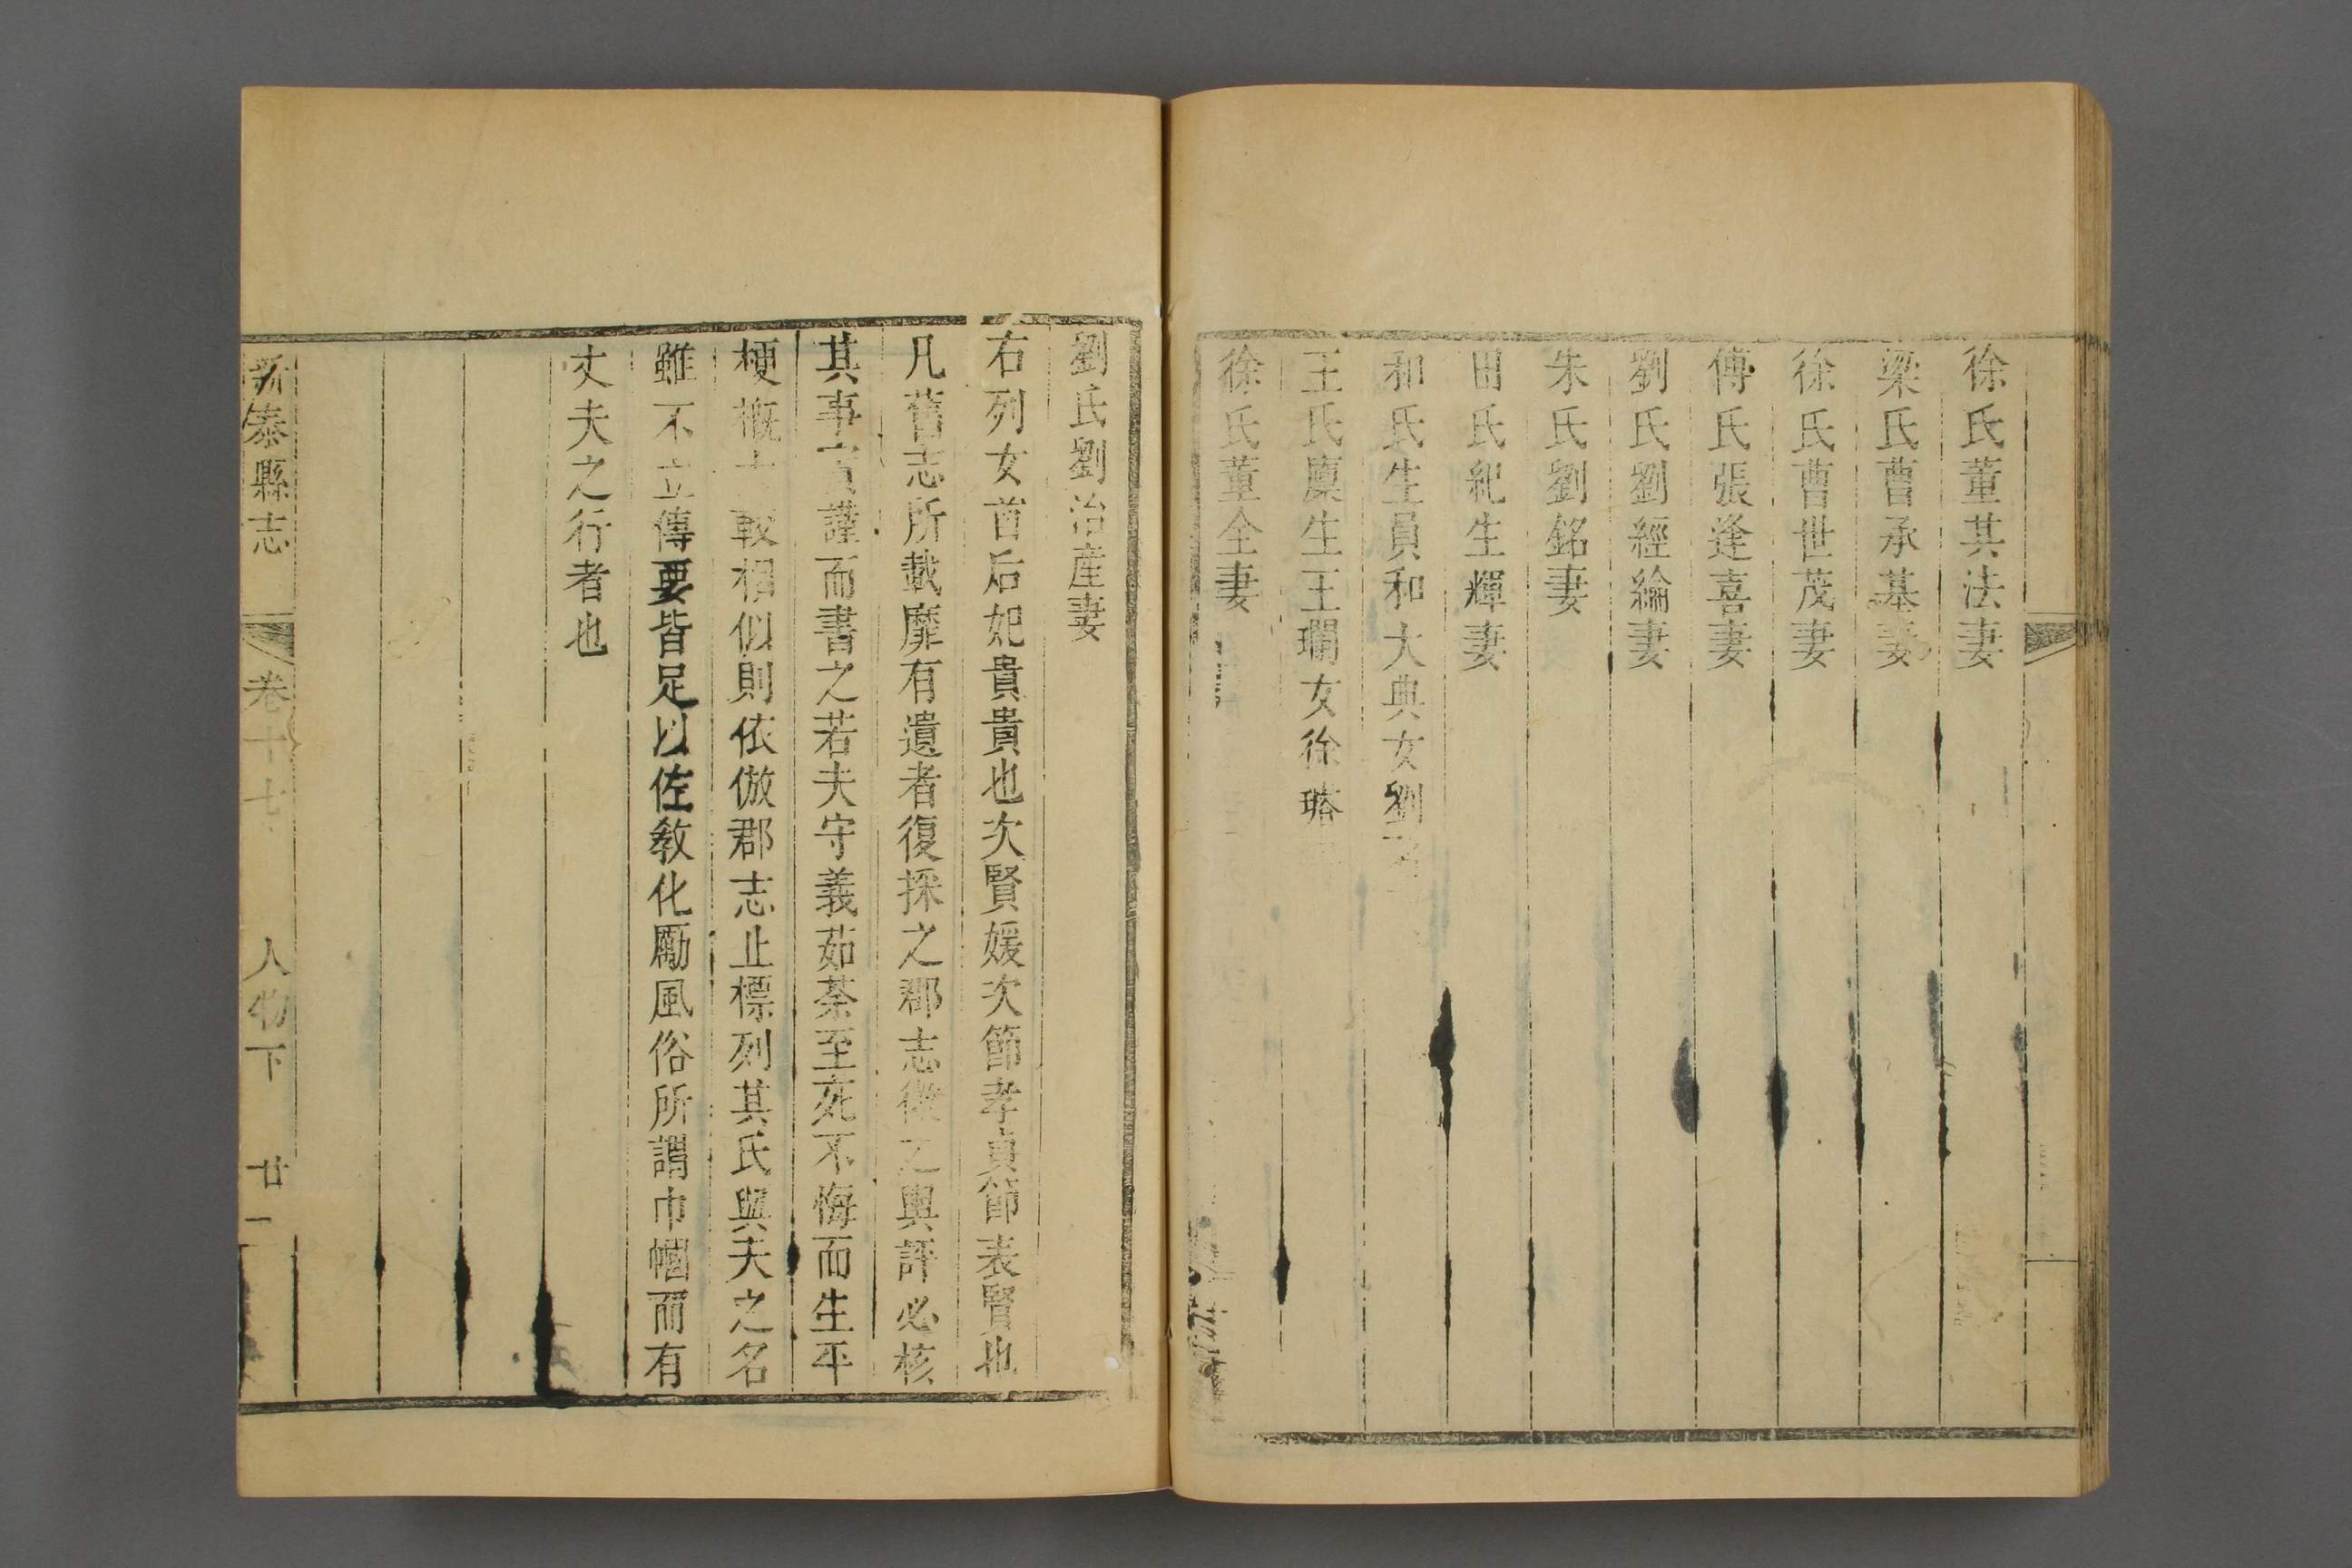 徐氏董其法妻
梁氏曹承基妻
徐氏曹世茂妻
傅氏張逢喜妻
劉氏劉經綸妻
朱氏劉銘妻
田氏紀生輝妻
和氏生員和大典女劉
王氏廩生王瓓女徐
徐氏董全妻
劉氏劉治產妻
右列女首后妃貴貴也次賢媛次節孝貞節表賢也
凡舊志所載靡有遺者復採之郡志徵之輿評必核
其事實謹而書之若夫守義茹荼至死不悔而生平
梗概大較相似則依倣郡志止標列其氏與夫之名
雖不立傳要皆足以佐敎化勵風俗所謂巾幗而有
丈夫之行者也
新泰縣志 卷十七 人物下 廿一